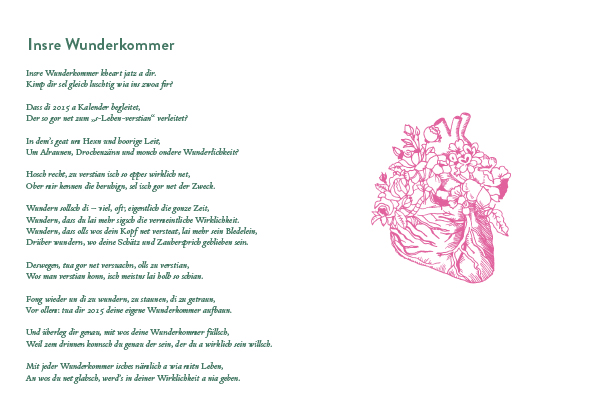 Insre Wunderkommer
Insre Wunderkommer kheart jatz a dir.
Kimp dir sel gleich luschtig wia ins zwoa fir?
Dass di 2015 a Kalender begleitet,
Der so gor net zum „s-Leben-verstian“ verleitet?
In dem's geat um Hexn und hoorige Leit,
Um Alraunen, Drochenzänn und monch ondere Wunderlichkeit?
Hosch recht, zu verstian isch so eppes wirklich net,
Ober mir kennen die beruhign, sel isch gor net der Zweck.
Wundern sollsch di – viel, oft, eigentlich die gonze Zeit,
Wundern, dass du lai mehr sigsch die vermeintliche Wirklichkeit.
Wundern, dass olls wos dein Kopf net versteat, lai mehr sein Bledelein,
Drüber wundern, wo deine Schätz und Zaubersprich geblieben sein.
Deswegen, tua gor net versuachn, olls zu verstian,
Wos man verstian konn, isch meistns lai holb so schian.
Fong wieder un di zu wundern, zu staunen, di zu getraun,
Vor ollem: tua dir 2015 deine eigene Wunderkommer aufbaun.
Und überleg dir genau, mit wos deine Wunderkommer füllsch,
Weil zem drinnen konnsch du genau der sein, der du a wirklich sein willsch.
Mit jeder Wunderkommer isches nämlich a wia mitn Leben,
An wos du net glabsch, werd's in deiner Wirklichkeit a nia geben.